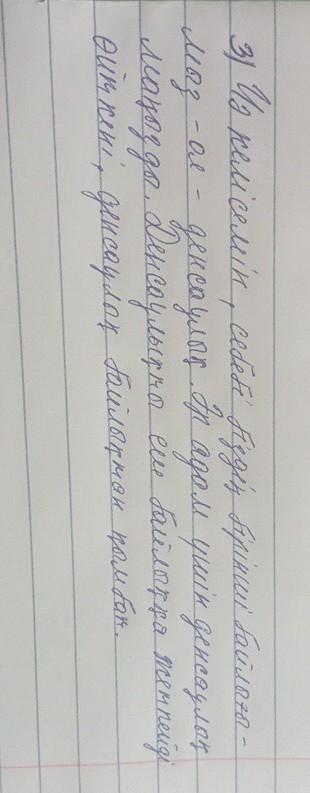 3) Из келісемін, себебі біздің бірінші байлығы-
мыз - ол - денсаулық. Әр адам үшін денсаулық
маңызды. Денсаулықты еш байлыққа теңемейді
өйткені, денсаулық байлықтан қымбат.